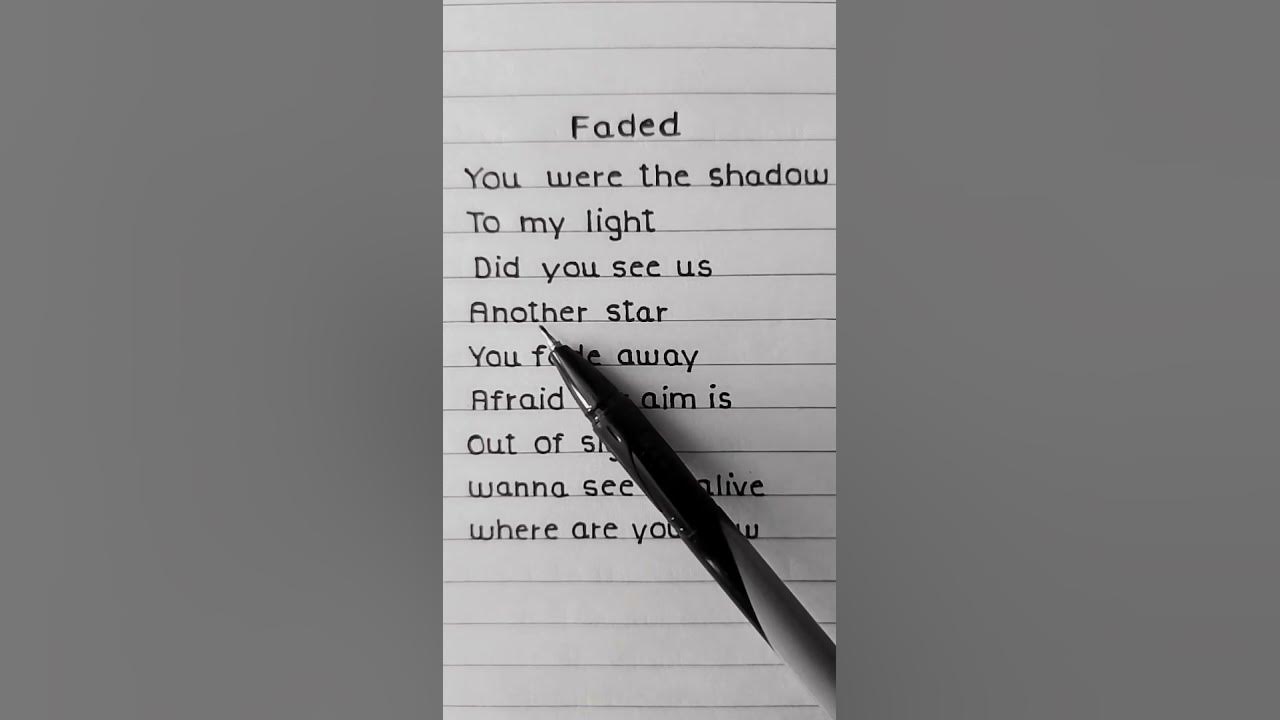 Faded
You were the shadow
To my light
Did you see us
Another star
You fade away
Afraid aim is
out of
wanna see alive
where are you